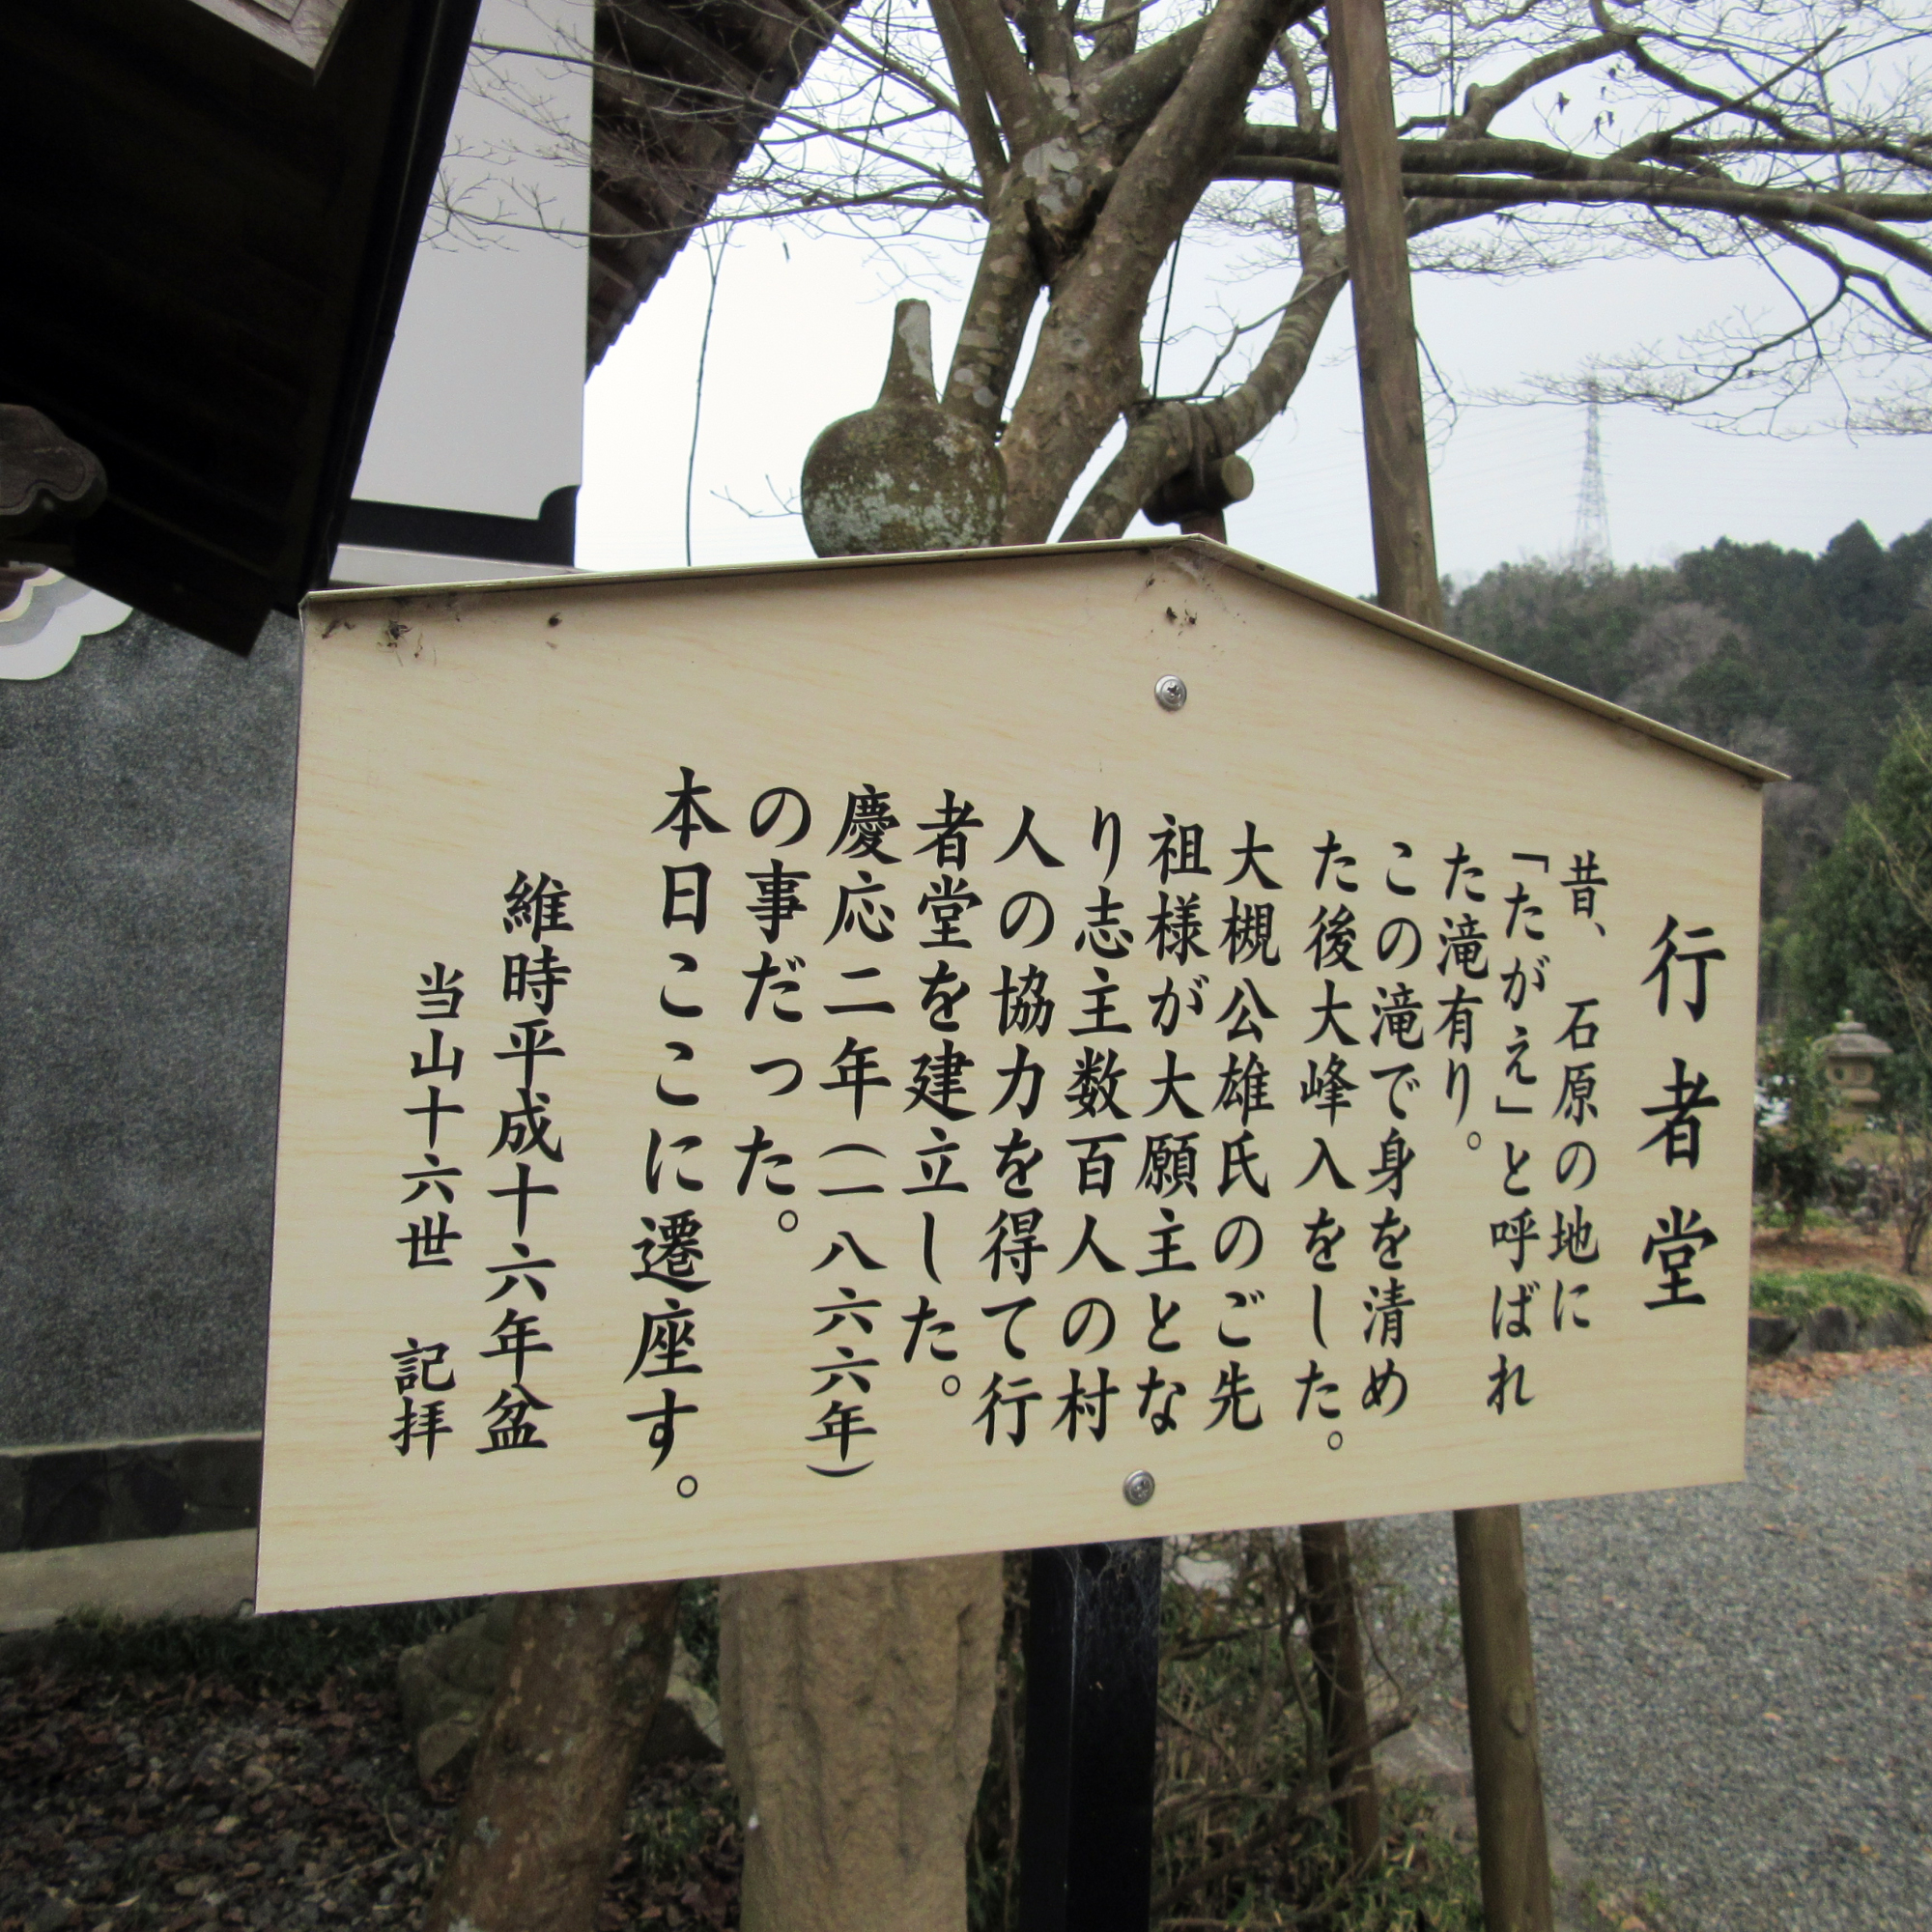 行者堂
昔、石原の地に
「たがえ」と呼ばれ
た滝有り。
この滝で身を清め
た後大峰入をした。
大槻公雄氏のご先
祖様が大願主とな
り志主数百人の村
人の協力を得て行
者堂を建立した。
慶応二年（一八六六年）
の事だった。
本日ここに遷座す。
維時平成十六年盆
当山十六世 記拝